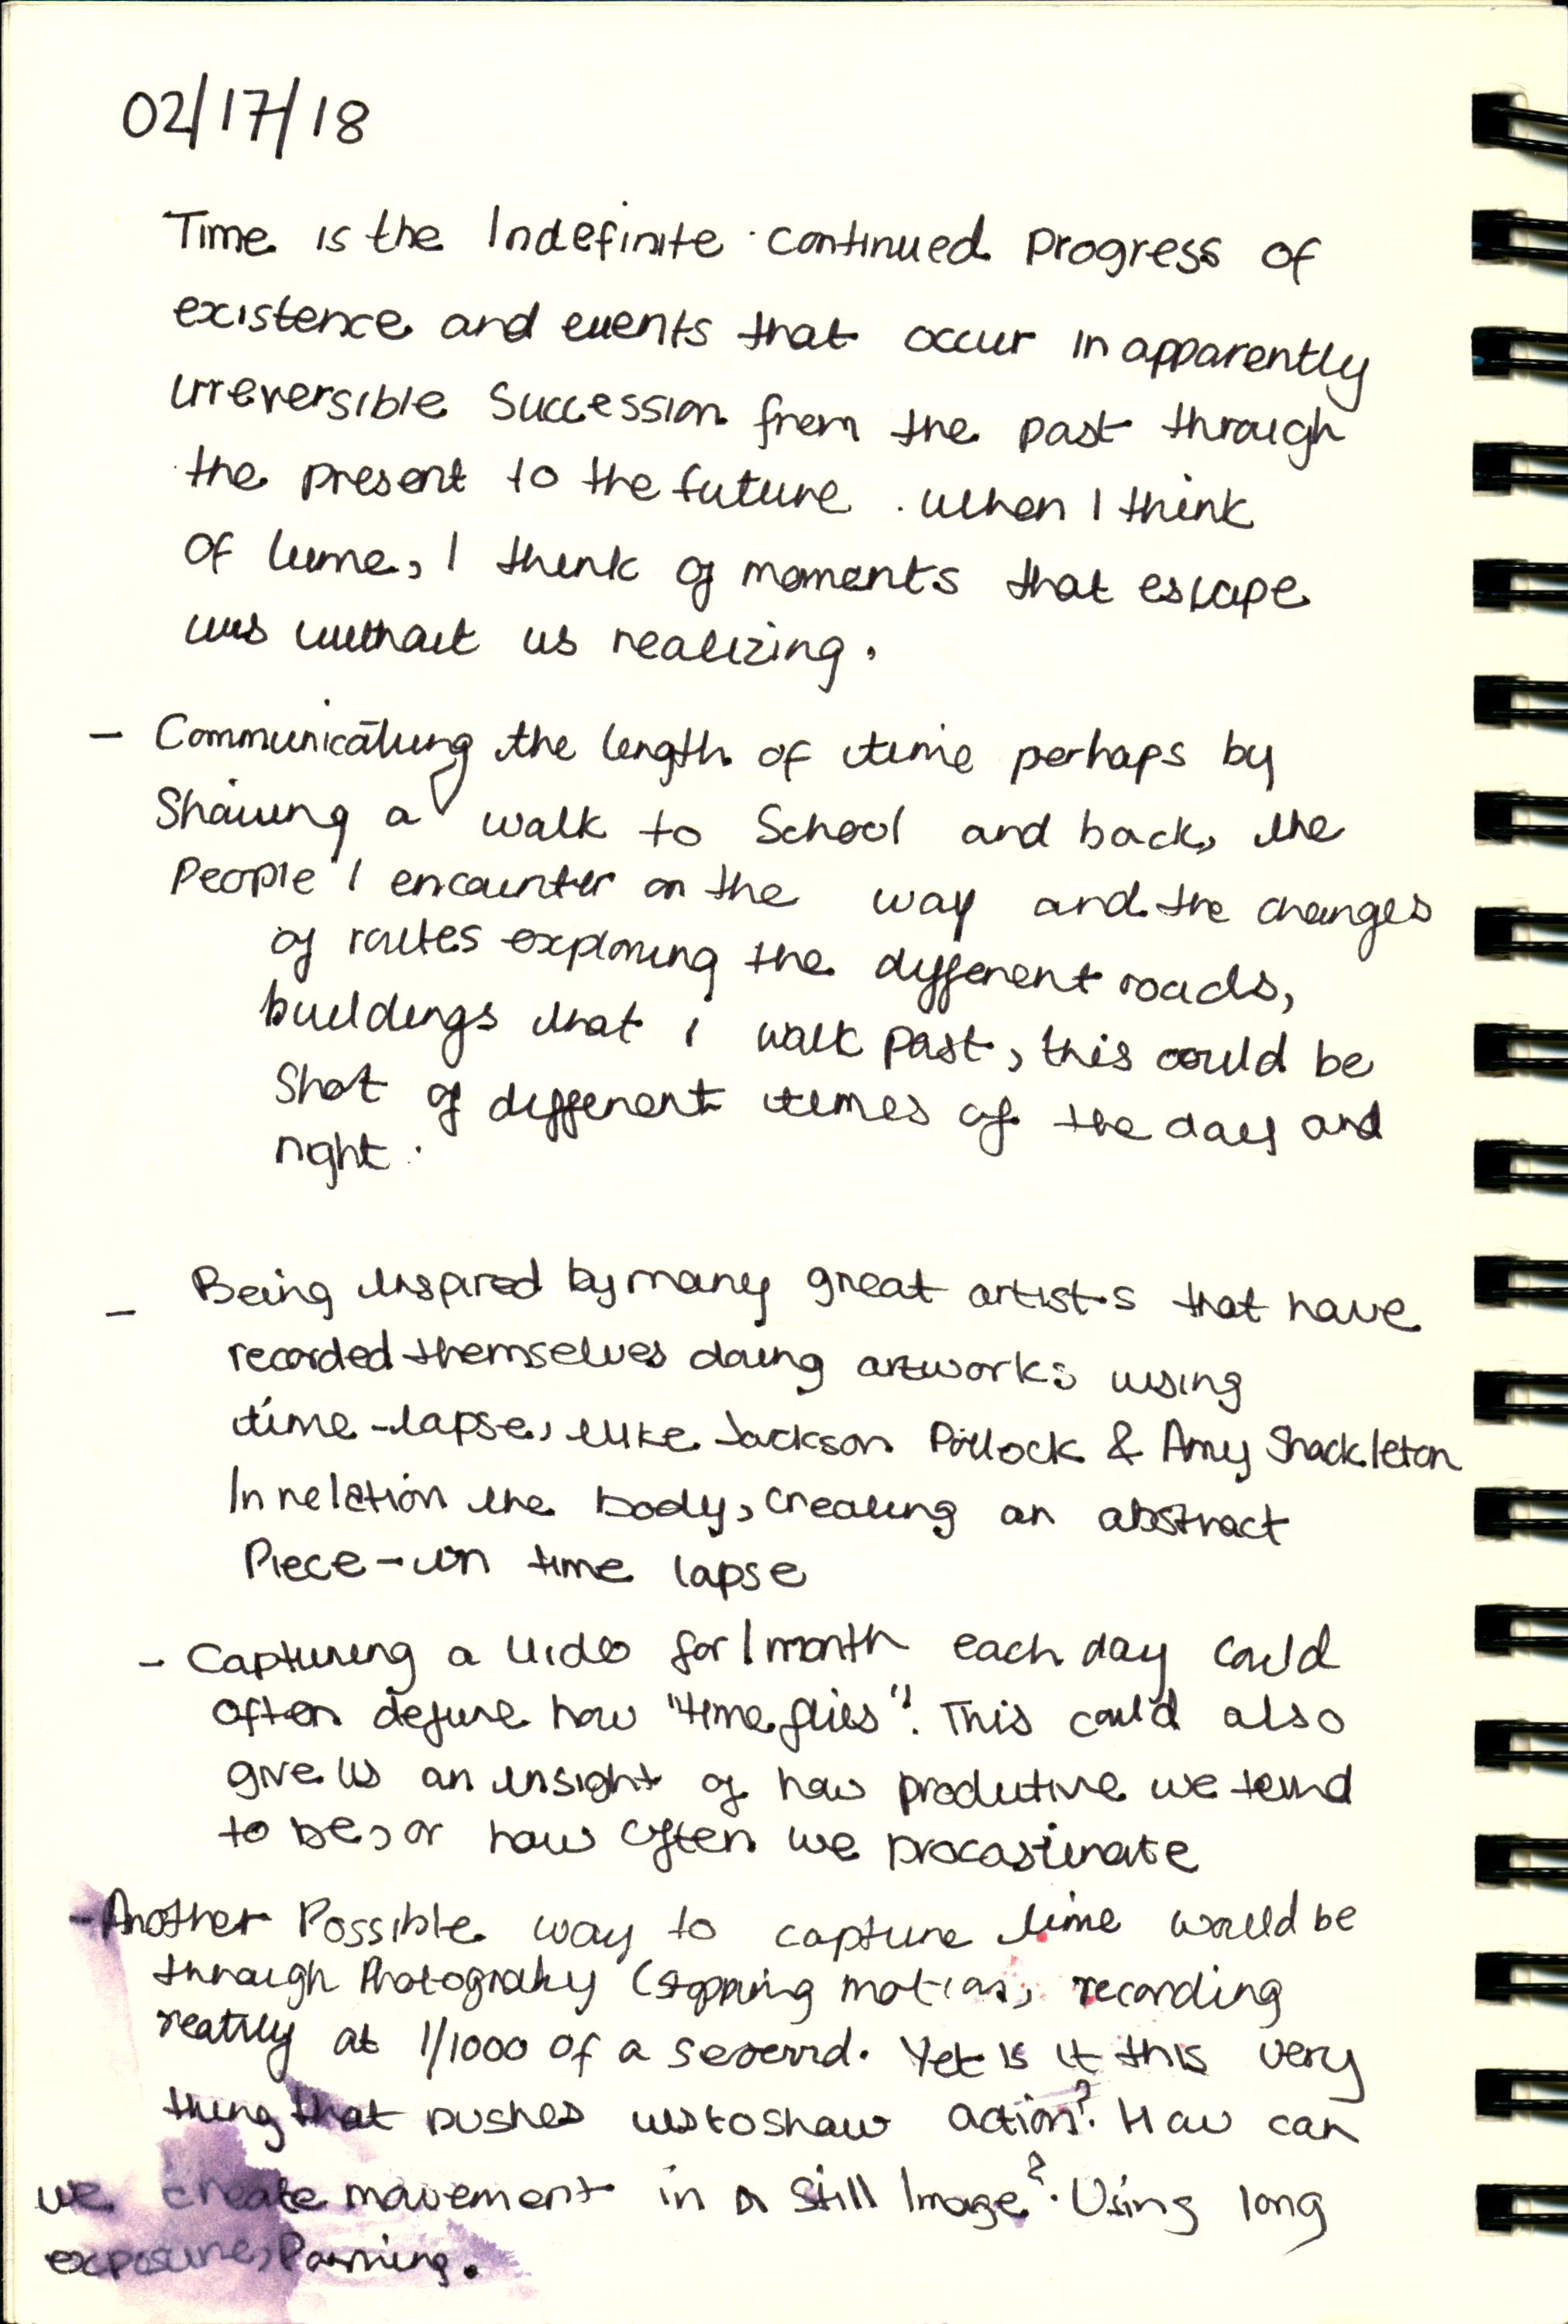 02/17/18
Time is the Indefinite continued progress of
existence and events that occur in apparently
irreversible Succession from the past through
the present to the future. when I think
of time, I think of moments that escape
us without us realizing.
- Communicating the length of time perhaps by
Showing a walk to School and back, the
People I encounter on the way and the changes
of routes exploring the different roads,
buildings that i walk past, this could be
Shot of different times of the day and
night.
- Being inspired by many great artists that have
recorded themselves doing artworks using
time-lapse, like Jackson Pollock & Amy Shackleton
In relation the body, creating an abstract
Piece - in time lapse
- Capturing a video for 1 month each day could
often define how "time flies". This could also
give us an insight of how produtive we tend
to be, or how often we procastinate
- Another Possible way to capture time would be
through Photograhy (stopping motion, recording
reatily at 1/1000 of a second. Yet is it this very
thing that pushes us to show action? How can
we create movement in a Still Image? Using long
exposure, Panning.